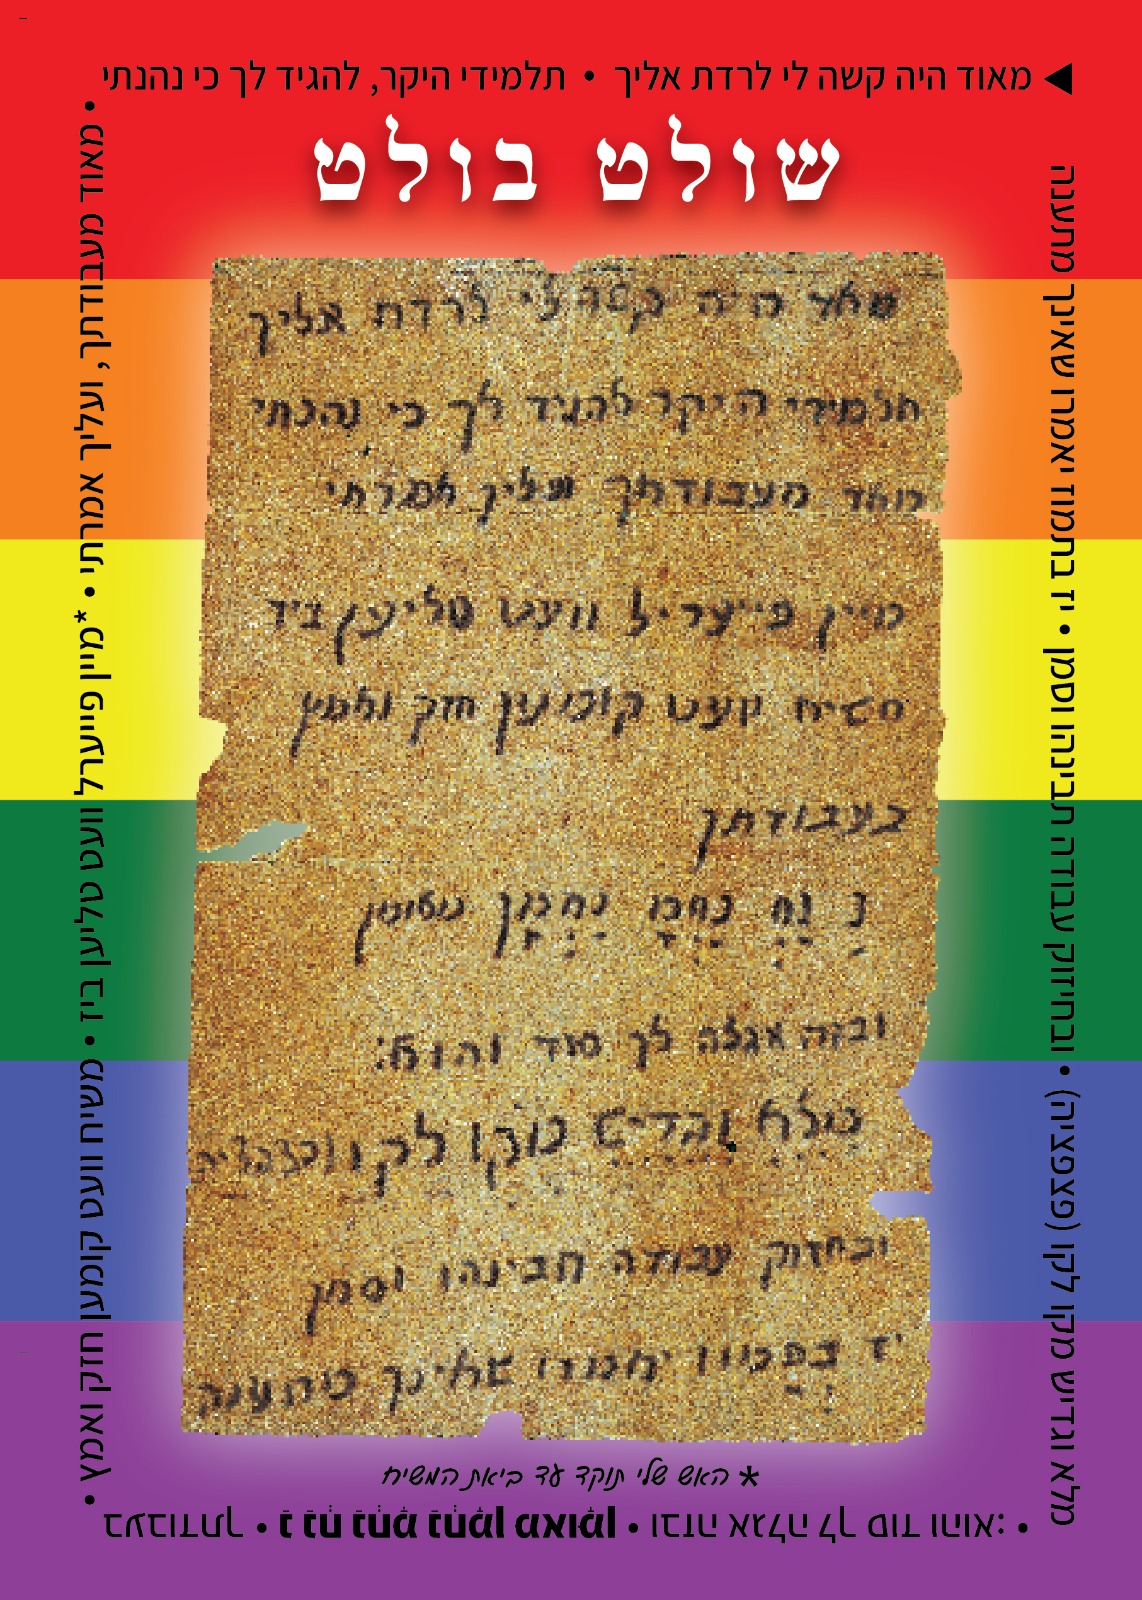 מאוד היה קשה לי לרדת אליך • תלמידי היקר, להגיד לך כי נהנתי
• מאוד מעבודתך, ועליך אמרתי • *מיין פייערל וועט טליען ביז • משיח וועט קומען חזק ואמץ •
בעבודתך • נַ נַחְ נַחְמָ נַחְמָן מְאוּמָן • ובזה אגלה לך סוד והוא: •
מלא וגדיש מקו לקו (פצפציה) • ובחיזוק עבודה תבינהו וסמן • יז בתמוז יאמרו שאינך מתענה
שולט בולט
מאד היה קשה לי לרדת אליך
תלמידי היקר להגיד לך כי נהנתי
מאד מעבודתך ועליך אמרתי
מיין פייעריל וועט טליען ביז
משיח וועט קומען חזק ואמץ
בעבודתך
נ נח נחמ נחמן מאומן
ובזה אגלה לך סוד והוא:
מולא וגדיש מקו לקו
ובחזוק עבודה תבינהו וסמן
יז בתמוז יאמרו שאינך מתענה
* האש שלי תוקד עד ביאת המשיח